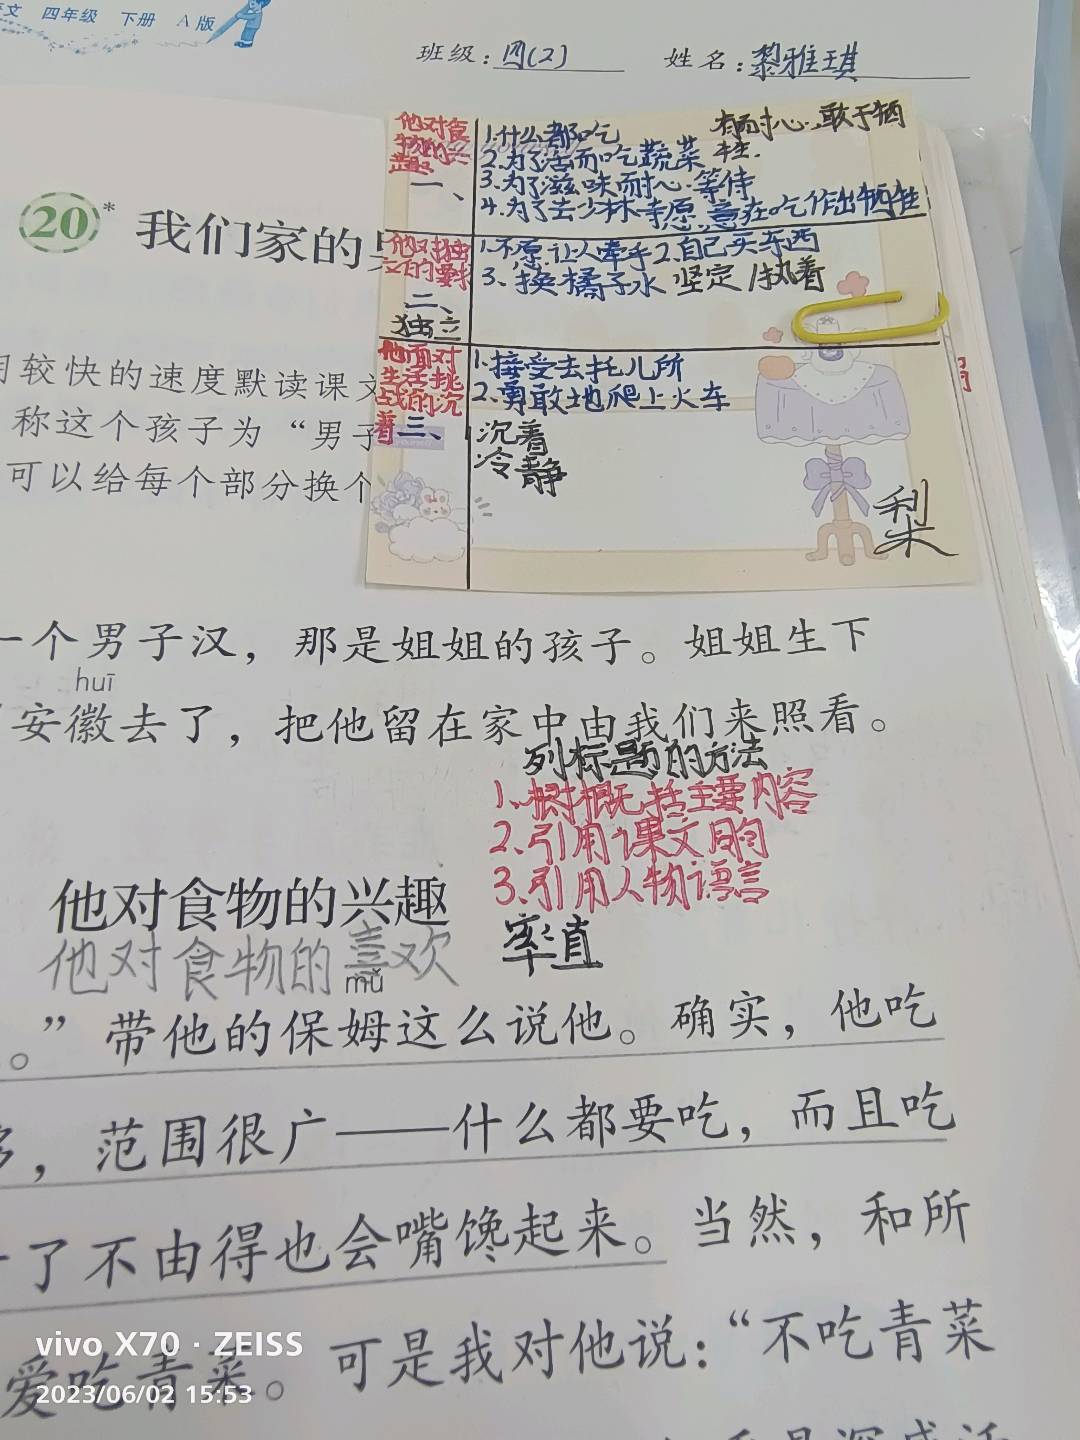 文 四年级 下册 A版
班级：四(2) 姓名：黎雅琪
他对食物的兴趣
一、
1.什么都吃 有耐心、敢于牺牲.
2.为了活而吃蔬菜
3.为了滋味而耐心等待
4.为了去少林寺愿意在吃作出牺牲
他对独立的要求
二、
独立
1.不愿让人牵手2.自己买东西
3、换橘子水 坚定 执着
他面对生活挑战的沉着
三、
1.接受去托儿所
2.勇敢地爬上火车
沉着
冷静
梨
20* 我们家的
用较快的速度默读课文
称这个孩子为“男子
可以给每个部分换个
一个男子汉，那是姐姐的孩子。姐姐生下
huī
安徽去了，把他留在家中由我们来照看。
列标题的方法
1、概括主要内容
2.引用课文
3.引用人物语言
他对食物的兴趣
率直
他对食物的喜欢
mǔ
。”带他的保姆这么说他。确实，他吃
多，范围很广——什么都要吃，而且吃
了不由得也会嘴馋起来。当然，和所
爱吃青菜。可是我对他说：“不吃青菜
vivo X70 · ZEISS
2023/06/02 15:53